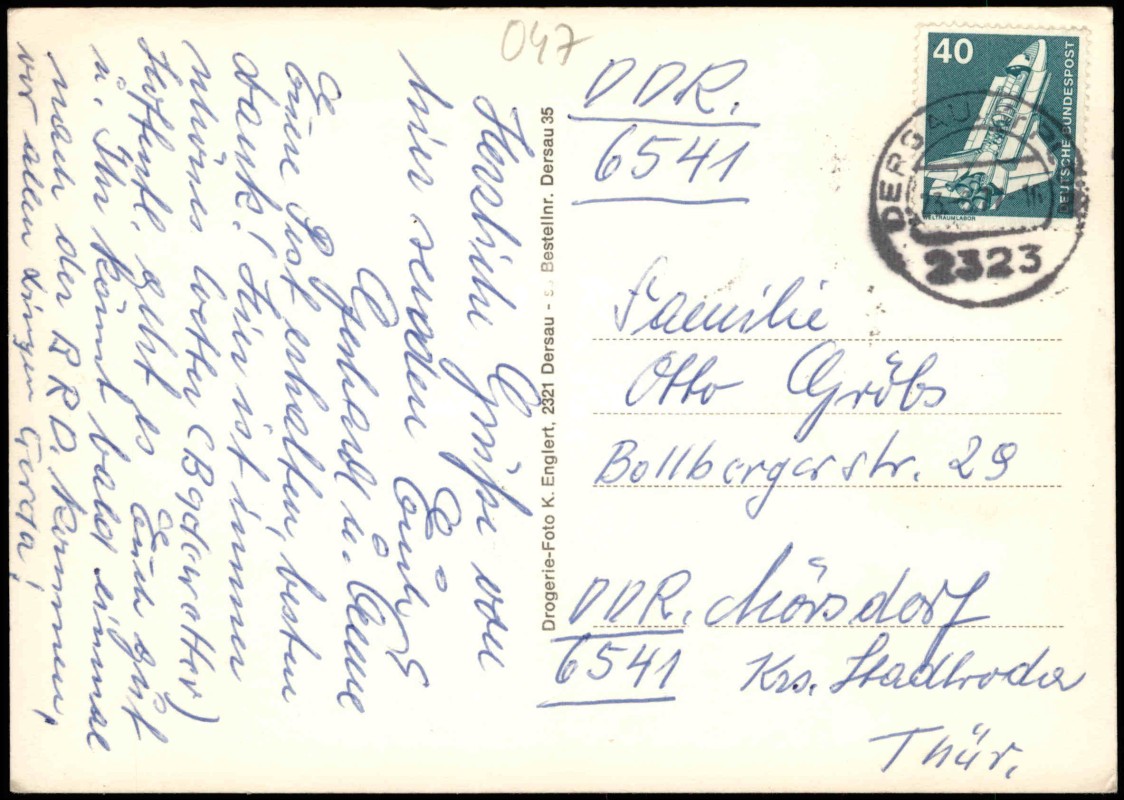 047
Herzliche Grüße von
hier senden Euch
Gerhard u. Anne
Eure Post erhalten, besten
dank! Hier ist immer
schönes Wetter (Badewetter)
Hoffentl. geht es Euch gut
u. Ihr könnt bald einmal
nach der BRD. kommen,
vor allen Dingen Gerda!
Drogerie-Foto K. Englert, 2321 Dersau - Bestellnr. Dersau 35
40
DEUTSCHE BUNDESPOST
WELTRAUMLABOR
DERSAU
2323
DDR.
6541
Familie
Otto Gröbs
Bollbergerstr. 29
DDR. Mörsdorf
6541 Krs. Stadtroda
Thür.